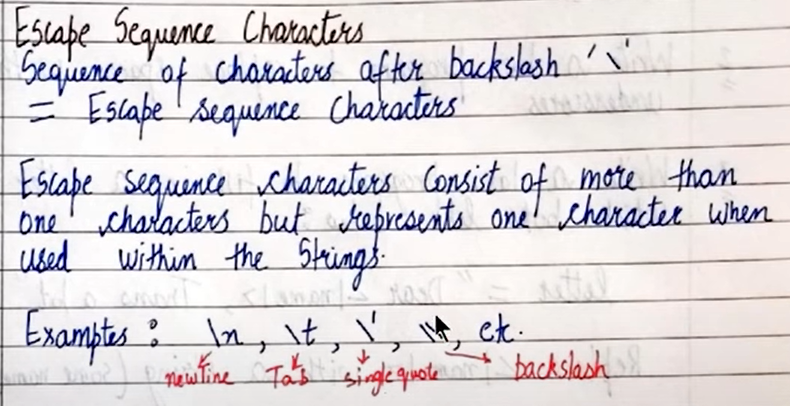 Escape Sequence Characters
Sequence of characters after backslash '\'
= Escape sequence Characters
Escape sequence characters Consist of more than
one characters but represents one character when
used within the Strings.
Examples : \n , \t , \' , \\ , etc.
newline Tab singlequote backslash